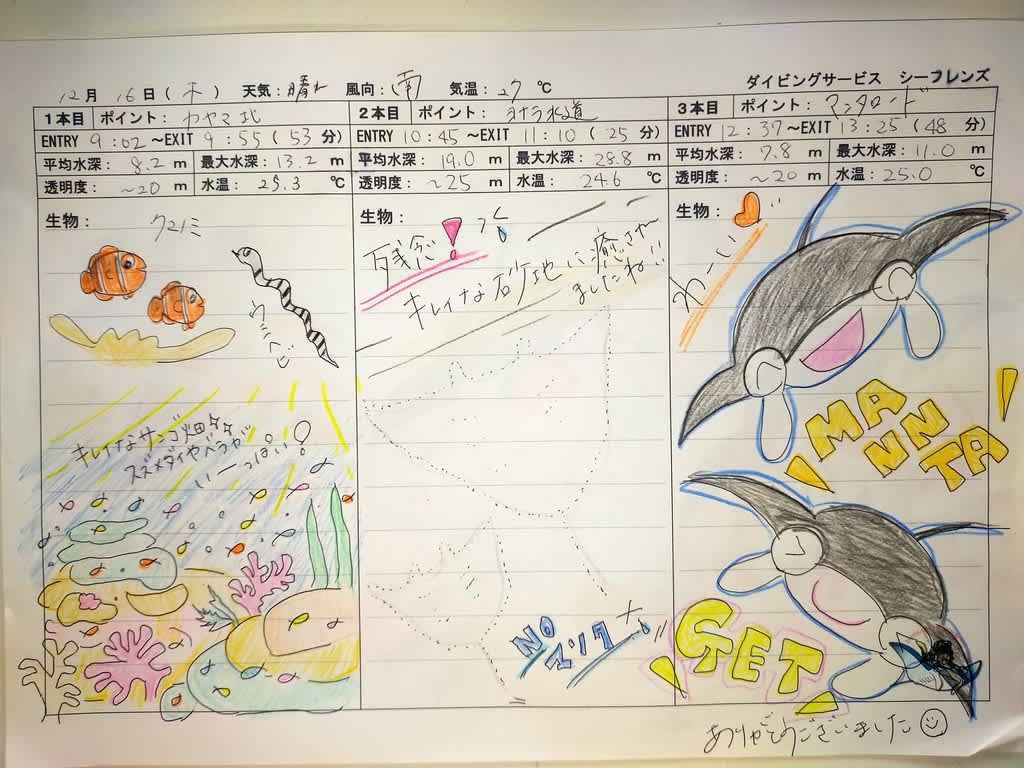 ダイビングサービス シーフレンズ
12月 16日(木) 天気:晴れ 風向:南 気温:27 ℃
1本目 ポイント: カヤマ北
ENTRY 9:02～EXIT 9:55(53分)
平均水深: 8.2 m 最大水深: 13.2 m
透明度: ～20 m 水温: 25.3 ℃
生物:
クマノミ
ウミヘビ
キレイなサンゴ畑
スズメダイやベラが
いーっぱい!
2本目 ポイント: ヨナラ水道
ENTRY 10:45～EXIT 11:10(25分)
平均水深: 19.0 m 最大水深: 28.8 m
透明度: ～25 m 水温: 24.6 ℃
生物:
残念!
キレイな砂地に癒され
ましたね!!
NO
マンタ
3本目 ポイント: マンタロード
ENTRY 12:37～EXIT 13:25(48分)
平均水深: 7.8 m 最大水深: 11.0 m
透明度: ～20 m 水温: 25.0 ℃
生物:
わーい
!MA
NN
TA!
!GET!
ありがとうございました